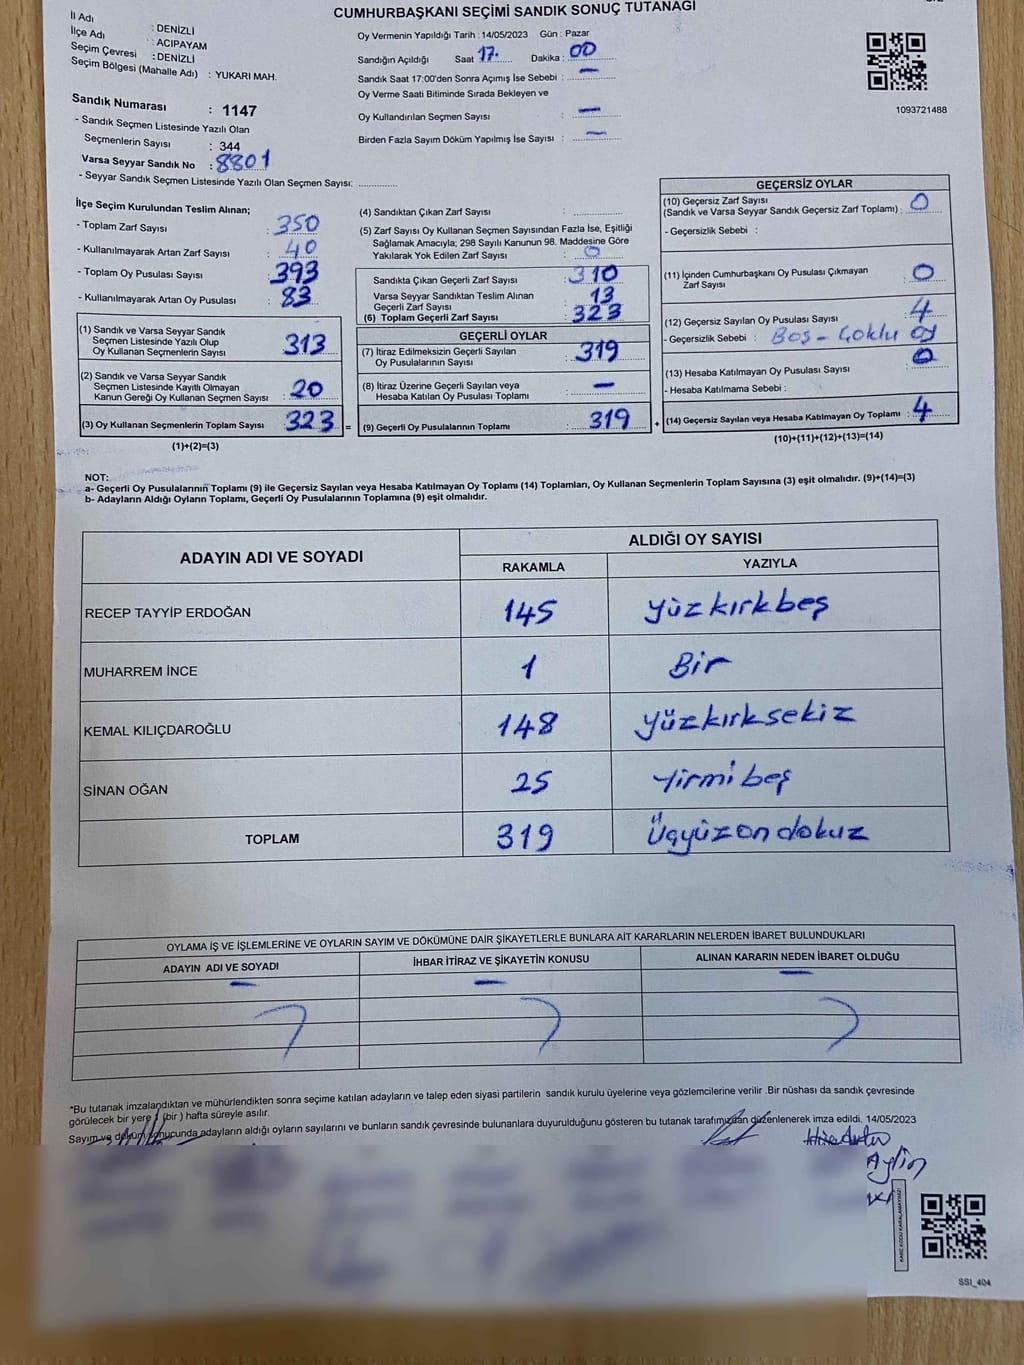 CUMHURBAŞKANI SEÇİMİ SANDIK SONUÇ TUTANAĞI
İl Adı : DENİZLİ
İlçe Adı : ACIPAYAM
Seçim Çevresi : DENİZLİ
Seçim Bölgesi (Mahalle Adı) : YUKARI MAH.
Sandık Numarası : 1147
- Sandık Seçmen Listesinde Yazılı Olan
Seçmenlerin Sayısı : 344
Varsa Seyyar Sandık No : 8801
- Seyyar Sandık Seçmen Listesinde Yazılı Olan Seçmen Sayısı: ............
Oy Vermenin Yapıldığı Tarih : 14/05/2023 Gün : Pazar
Sandığın Açıldığı Saat 17. Dakika : 00
Sandık Saat 17:00'den Sonra Açımış İse Sebebi : —
Oy Verme Saati Bitiminde Sırada Bekleyen ve
Oy Kullandırılan Seçmen Sayısı : —
Birden Fazla Sayım Döküm Yapılmış İse Sayısı : —
1093721488
İlçe Seçim Kurulundan Teslim Alınan;
- Toplam Zarf Sayısı : 350
- Kullanılmayarak Artan Zarf Sayısı : 40
- Toplam Oy Pusulası Sayısı : 393
- Kullanılmayarak Artan Oy Pusulası : 83
(1) Sandık ve Varsa Seyyar Sandık
Seçmen Listesinde Yazılı Olup
Oy Kullanan Seçmenlerin Sayısı : 313
(2) Sandık ve Varsa Seyyar Sandık
Seçmen Listesinde Kayıtlı Olmayan
Kanun Gereği Oy Kullanan Seçmen Sayısı : 20
(3) Oy Kullanan Seçmenlerin Toplam Sayısı : 323 =
(1)+(2)=(3)
(4) Sandıktan Çıkan Zarf Sayısı : ............
(5) Zarf Sayısı Oy Kullanan Seçmen Sayısından Fazla İse, Eşitliği
Sağlamak Amacıyla; 298 Sayılı Kanunun 98. Maddesine Göre
Yakılarak Yok Edilen Zarf Sayısı : 0
Sandıkta Çıkan Geçerli Zarf Sayısı : 310
Varsa Seyyar Sandıktan Teslim Alınan
Geçerli Zarf Sayısı : 13
(6) Toplam Geçerli Zarf Sayısı : 323
GEÇERLİ OYLAR
(7) İtiraz Edilmeksizin Geçerli Sayılan
Oy Pusulalarının Sayısı : 319
(8) İtiraz Üzerine Geçerli Sayılan veya
Hesaba Katılan Oy Pusulası Toplamı : —
(9) Geçerli Oy Pusulalarının Toplamı : 319 +
GEÇERSİZ OYLAR
(10) Geçersiz Zarf Sayısı
(Sandık ve Varsa Seyyar Sandık Geçersiz Zarf Toplamı) : 0
- Geçersizlik Sebebi :
(11) İçinden Cumhurbaşkanı Oy Pusulası Çıkmayan
Zarf Sayısı : 0
(12) Geçersiz Sayılan Oy Pusulası Sayısı : 4
- Geçersizlik Sebebi : Boş - Çoklu oy
(13) Hesaba Katılmayan Oy Pusulası Sayısı : 0
- Hesaba Katılmama Sebebi :
(14) Geçersiz Sayılan veya Hesaba Katılmayan Oy Toplamı : 4
(10)+(11)+(12)+(13)=(14)
NOT:
a- Geçerli Oy Pusulalarının Toplamı (9) ile Geçersiz Sayılan veya Hesaba Katılmayan Oy Toplamı (14) Toplamları, Oy Kullanan Seçmenlerin Toplam Sayısına (3) eşit olmalıdır. (9)+(14)=(3)
b- Adayların Aldığı Oyların Toplamı, Geçerli Oy Pusulalarının Toplamına (9) eşit olmalıdır.
ADAYIN ADI VE SOYADI ALDIĞI OY SAYISI
RAKAMLA YAZIYLA
RECEP TAYYİP ERDOĞAN 145 yüzkırkbeş
MUHARREM İNCE 1 Bir
KEMAL KILIÇDAROĞLU 148 yüzkırksekiz
SİNAN OĞAN 25 Yirmibeş
TOPLAM 319 Üçyüzondokuz
OYLAMA İŞ VE İŞLEMLERİNE VE OYLARIN SAYIM VE DÖKÜMÜNE DAİR ŞİKAYETLERLE BUNLARA AİT KARARLARIN NELERDEN İBARET BULUNDUKLARI
ADAYIN ADI VE SOYADI İHBAR İTİRAZ VE ŞİKAYETİN KONUSU ALINAN KARARIN NEDEN İBARET OLDUĞU
— — —
*Bu tutanak imzalandıktan ve mühürlendikten sonra seçime katılan adayların ve talep eden siyasi partilerin sandık kurulu üyelerine veya gözlemcilerine verilir .Bir nüshası da sandık çevresinde
görülecek bir yere 1 (bir ) hafta süreyle asılır.
Sayım ve döküm sonucunda adayların aldığı oyların sayılarını ve bunların sandık çevresinde bulunanlara duyurulduğunu gösteren bu tutanak tarafımızdan düzenlenerek imza edildi. 14/05/2023
Aylin
KARE KODU KARALAMAYINIZ!
SSI_404